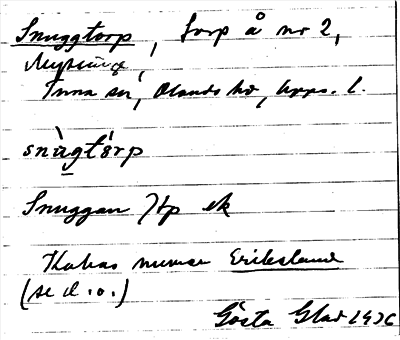 Snuggtorp, torp å nr 2,
Tuna sn, Olands hd, Upps. l.
snùgtórp
Snuggan Htp ek
Kallas numse Erikslund
(se d. o.)
Gösta Glad 1936